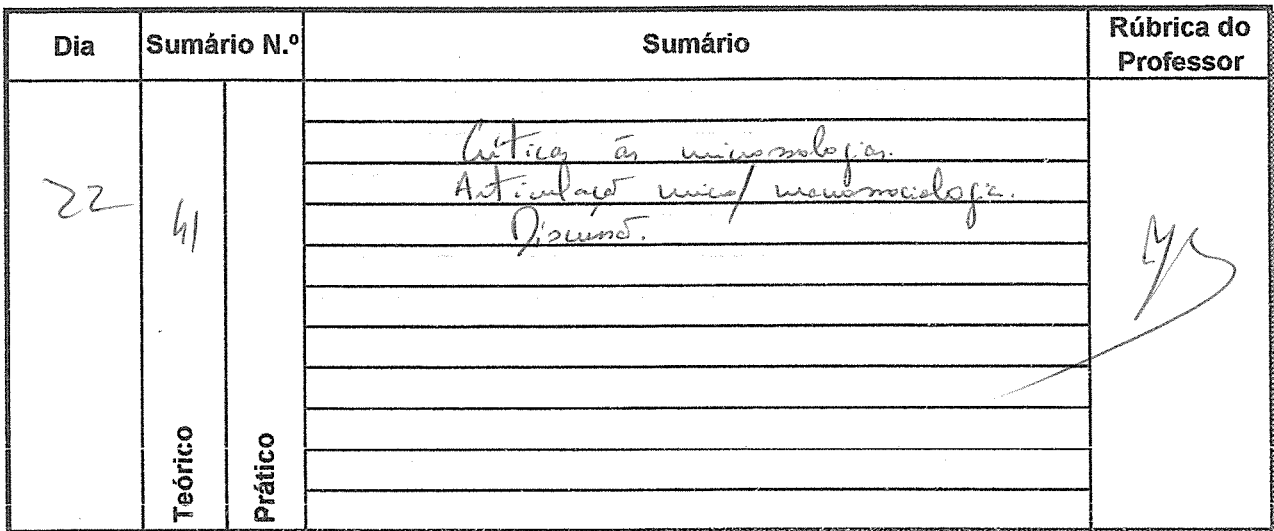 Dia Sumário N.º Sumário Rúbrica do Professor
22 41
Críticas às microssologias.
Articulação micro/macrossociologia.
Discussão.
Teórico
Prático